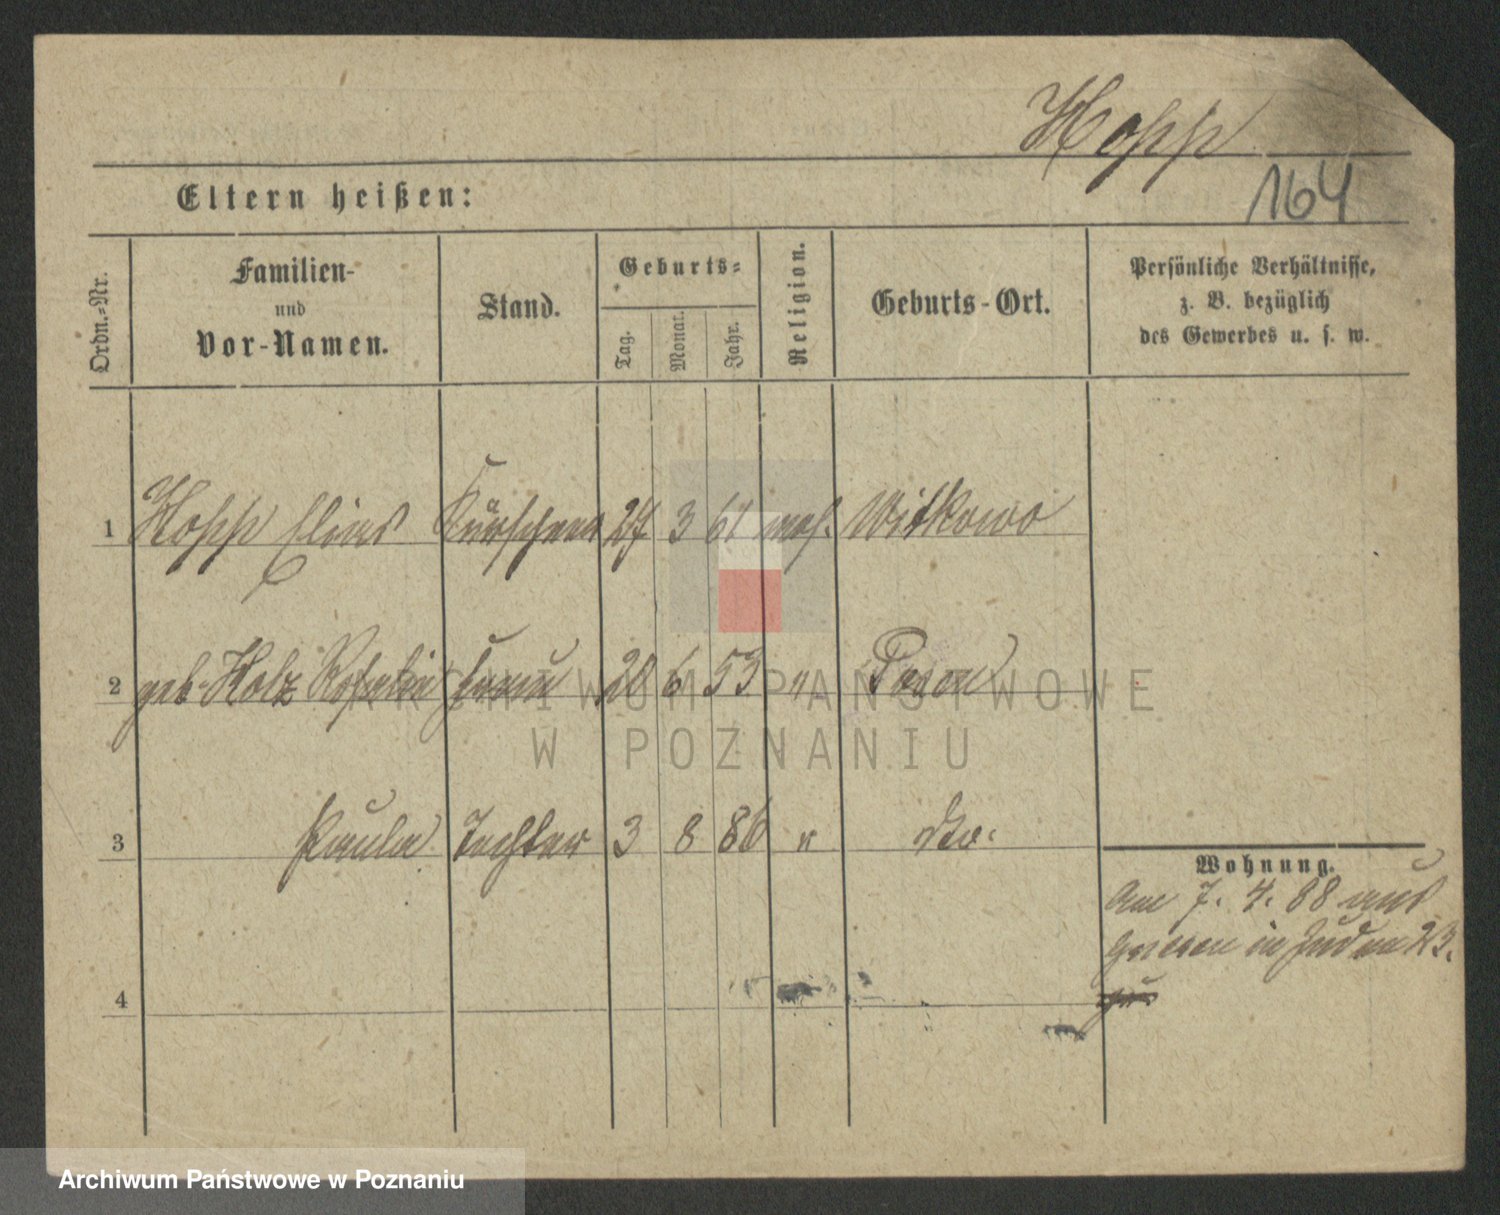 Hopp
164
Eltern heißen:
Ordn.-Nr.
Familien-
und
Vor-Namen.
Stand.
Geburts-
Tag.
Monat.
Jahr.
Religion.
Geburts-Ort.
Persönliche Verhältnisse,
z. B. bezüglich
des Gewerbes u. s. w.
1 Hopp Elias Kürschner 27 3 61 mos. Witkowo
2 geb. Holz Rosalie Frau 20 6 53 " Posen
ARCHIWUM PAŃSTWOWE
W POZNANIU
3 Paula Tochter 3 8 86 " do.
Wohnung.
Am 7. 4. 88 aus
Gnesen in Juden 23.
4
Archiwum Państwowe w Poznaniu